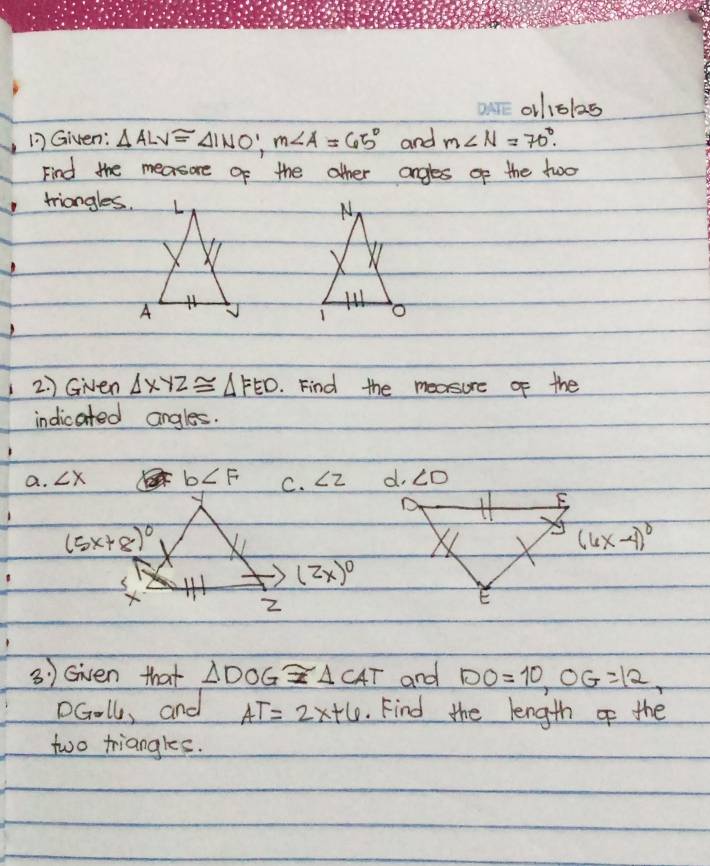 DATE 01/15/25
1.) Given: △ALV ≅ △INO; m∠A = 65° and m∠N = 70°.
Find the measure of the other angles of the two
triangles.
L N
A V I O
2.) Given △XYZ ≅ △FED. Find the measure of the
indicated angles.
a. ∠X b∠F c. ∠Z d. ∠D
Y D F
(5x+8)° (2x)° (6x-4)°
X Z E
3.) Given that △DOG ≅ △CAT and DO=10, OG=12,
DG=16, and AT= 2x+6. Find the length of the
two triangles.